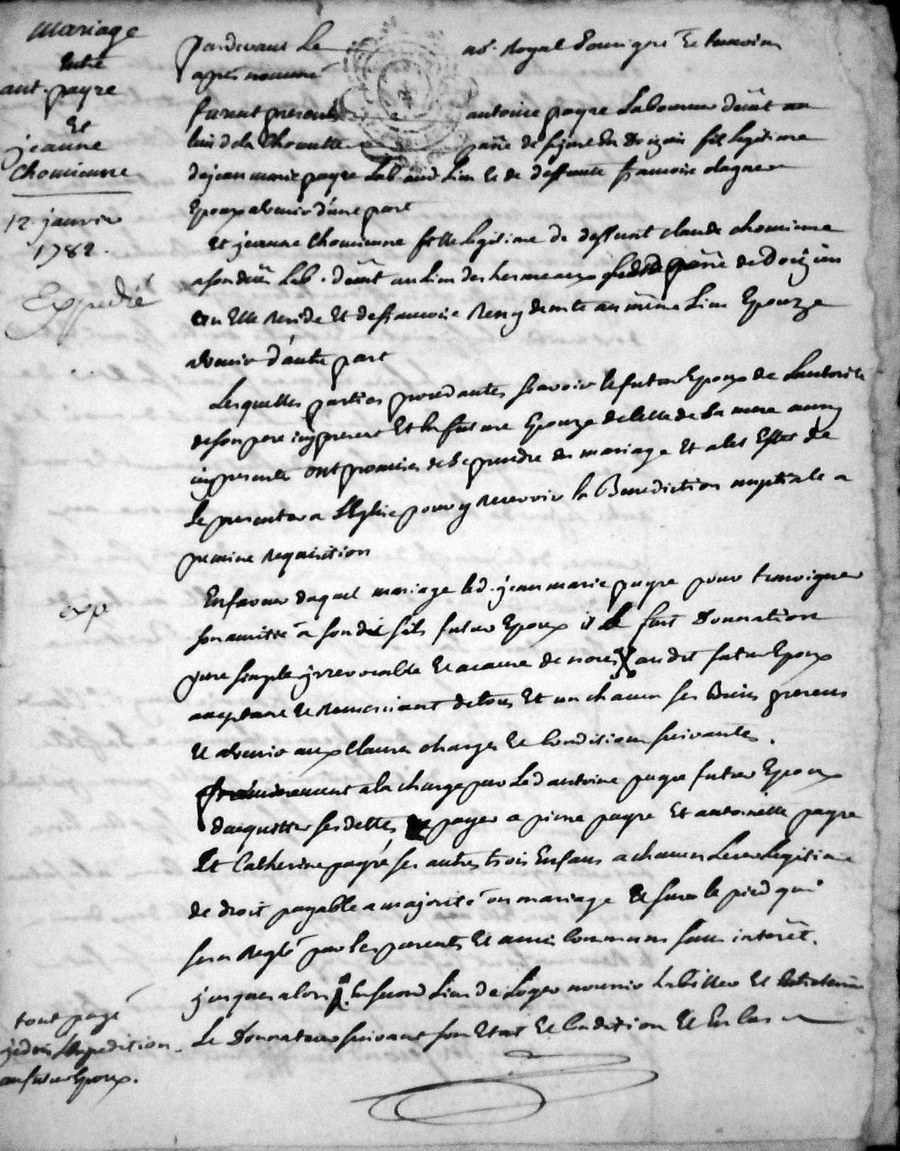 Mariage
Entre
ant. payre
Et
jeanne
Chomienne
12 janvier
1782.
Expedié
pardevant Le no. Royal soussigné Et temoins
après nommé
furent presents antoine payre Laboureur demt au
lieu de la Chomette parre de Doizieu fils legitime
de jean marie payre Lab. aud. Lieu Et de deffunte francoise
Epoux avenir d'une part
Et jeanne Chomienne fille legitime de deffunt claude chomienne
a son decès Lab. demt au Lieu des hermeaux parre de Doizieu
ou Elle Reside Et de francoise Rey demte au même Lieu Epouze
avenir d'autre part
Lesquelles parties procedantes scavoir le futur Epoux de L'autorité
de son pere icy present Et la future Epouze de celle de Sa mere aussy
icy presente ont promis de Se prendre en mariage Et a cet Effet de
Se presenter a L'Eglise pour y recevoir la Benediction nuptiale a
premiere Requisition
exp
En faveur duquel mariage led. jean marie payre pour temoigner
son amitié a son dit fils futur Epoux il fait Donnation
pure simple irrevocable Et a cause de noces au dit futur Epoux
acceptant Et Remerciant de tous Et un chacun ses Biens presens
Et avenir aux Clauses charges Et Conditions suivantes.
a la charge par Led antoine payre futur Epoux
d'acquitter ses dettes payer a pierre payre Et antoinette payre
Et Catherine payre ses autres trois Enfans a chacun Leur Legitime
de droit payable a majorité ou mariage Et sur le pied qui
sera Reglé par les parents Et amis Communs sans interêt.
jusques alors En second Lieu de Loger nourrir habiller Et Entretenir
Le Donnateur suivant son Etat Et Condition Et En Cas
tout payé
jedois L'Expedition
au futur Epoux.